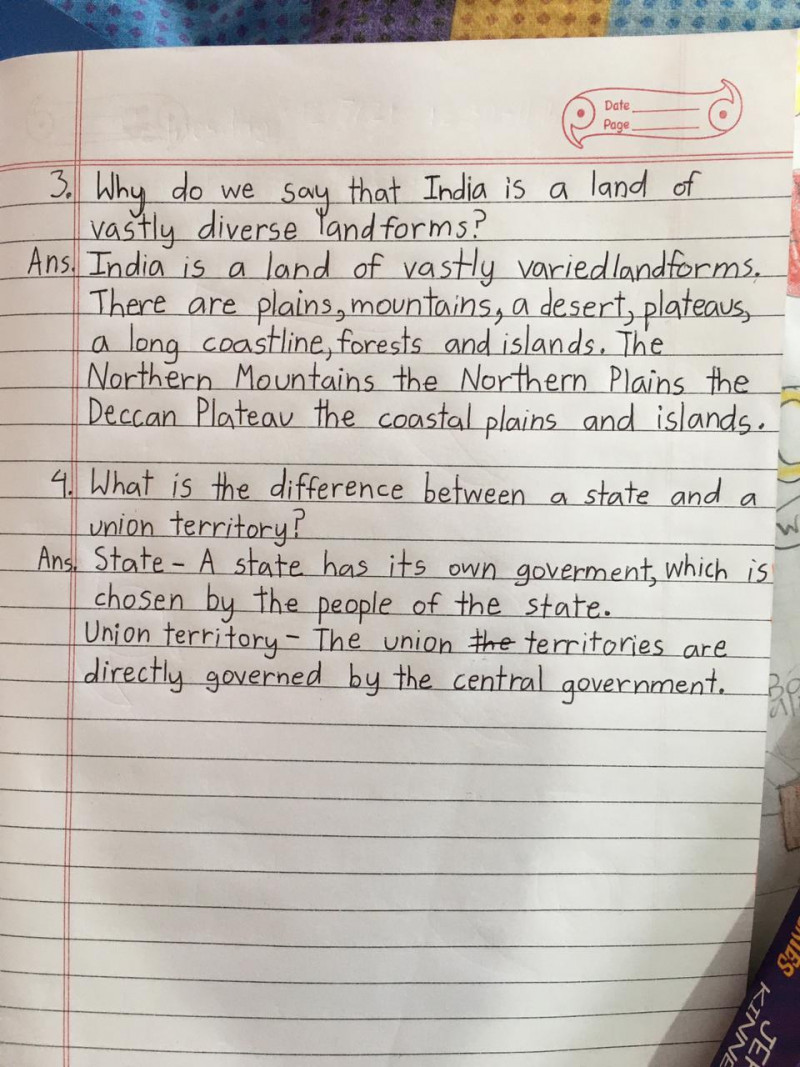 Date
Page
3. Why do we say that India is a land of
vastly diverse landforms?
Ans. India is a land of vastly varied landforms.
There are plains, mountains, a desert, plateaus,
a long coastline, forests and islands. The
Northern Mountains the Northern Plains the
Deccan Plateau the coastal plains and islands.
4. What is the difference between a state and a
union territory?
Ans. State - A state has its own goverment, which is
chosen by the people of the state.
Union territory - The union the territories are
directly governed by the central government.